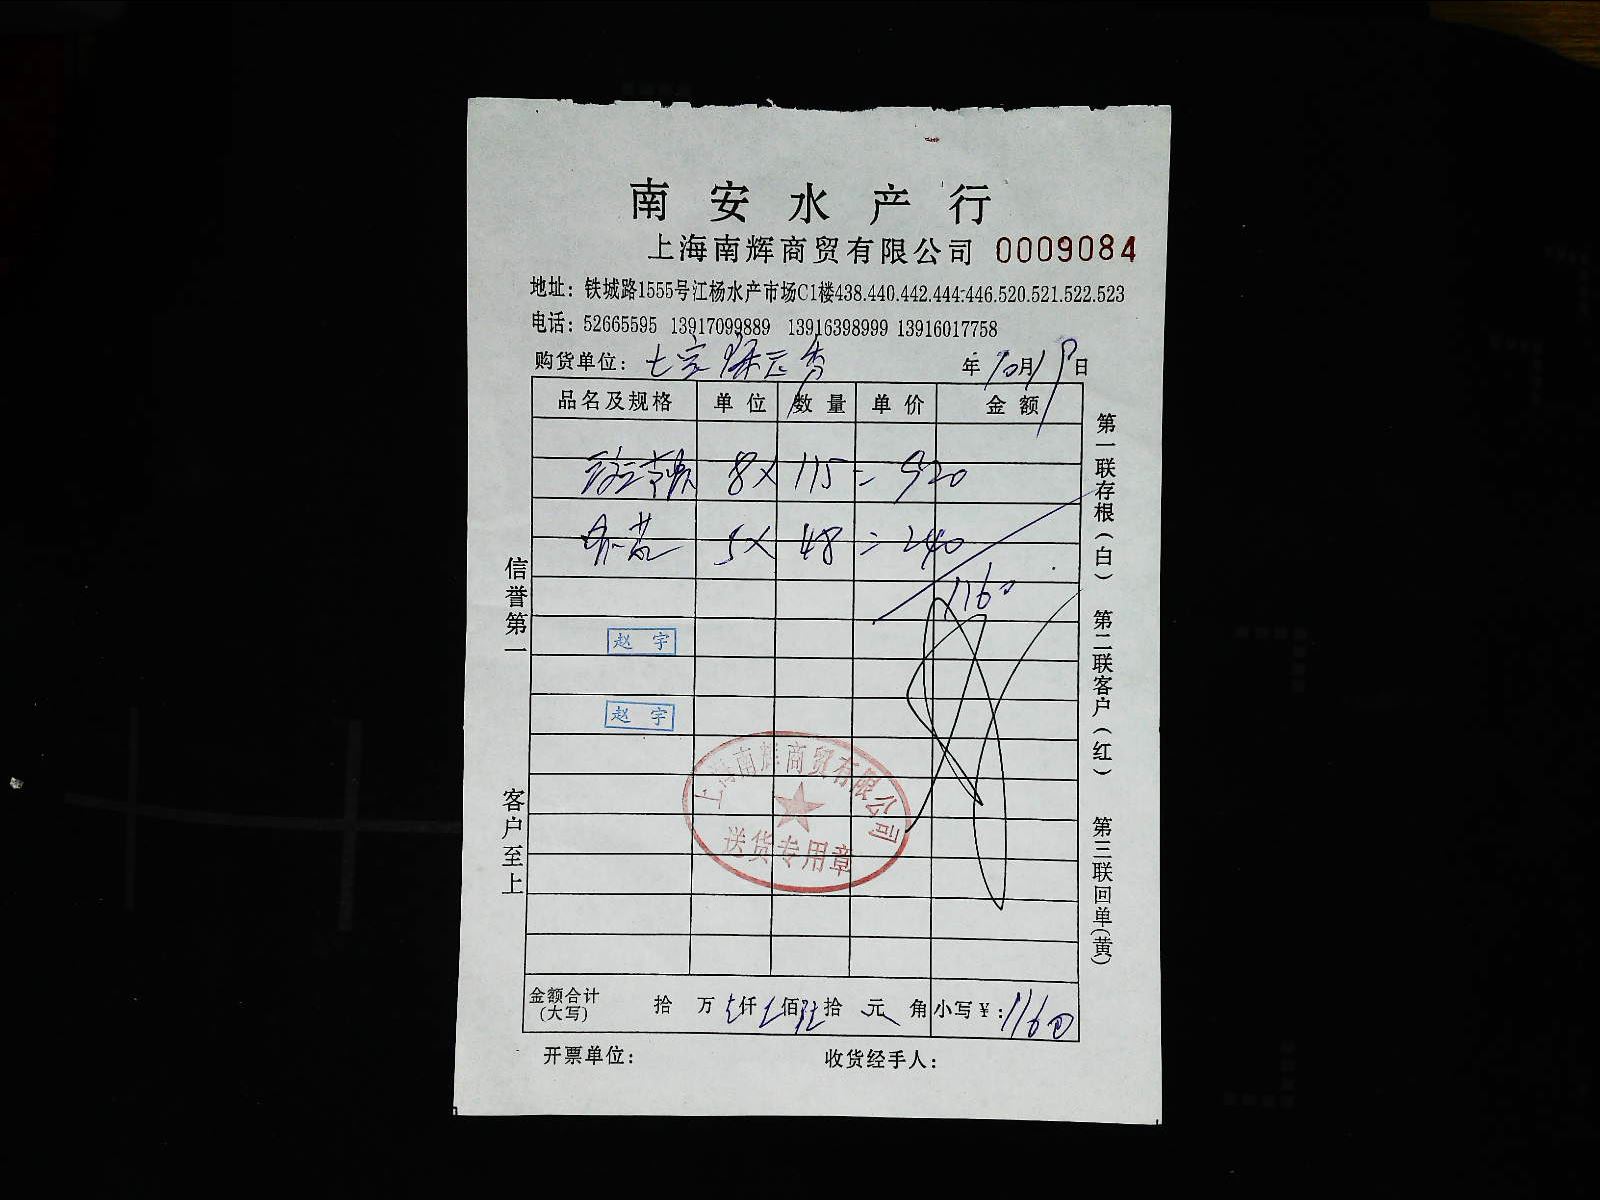 南安水产行
上海南辉商贸有限公司 0009084
地址：铁城路1555号江杨水产市场C1楼438.440.442.444.446.520.521.522.523
电话：52665595 13917099889 13916398999 13916017758
购货单位：
年10月19日
品名及规格 单位 数量 单价 金额
8× 115 = 920
5× 48 = 240
1160
赵宇
赵宇
上海南辉商贸有限公司
送货专用章
金额合计（大写） 拾 万 仟 佰 拾 元 角 小写￥：1160
开票单位： 收货经手人：
信誉第一
客户至上
第一联存根（白）
第二联客户（红）
第三联回单（黄）